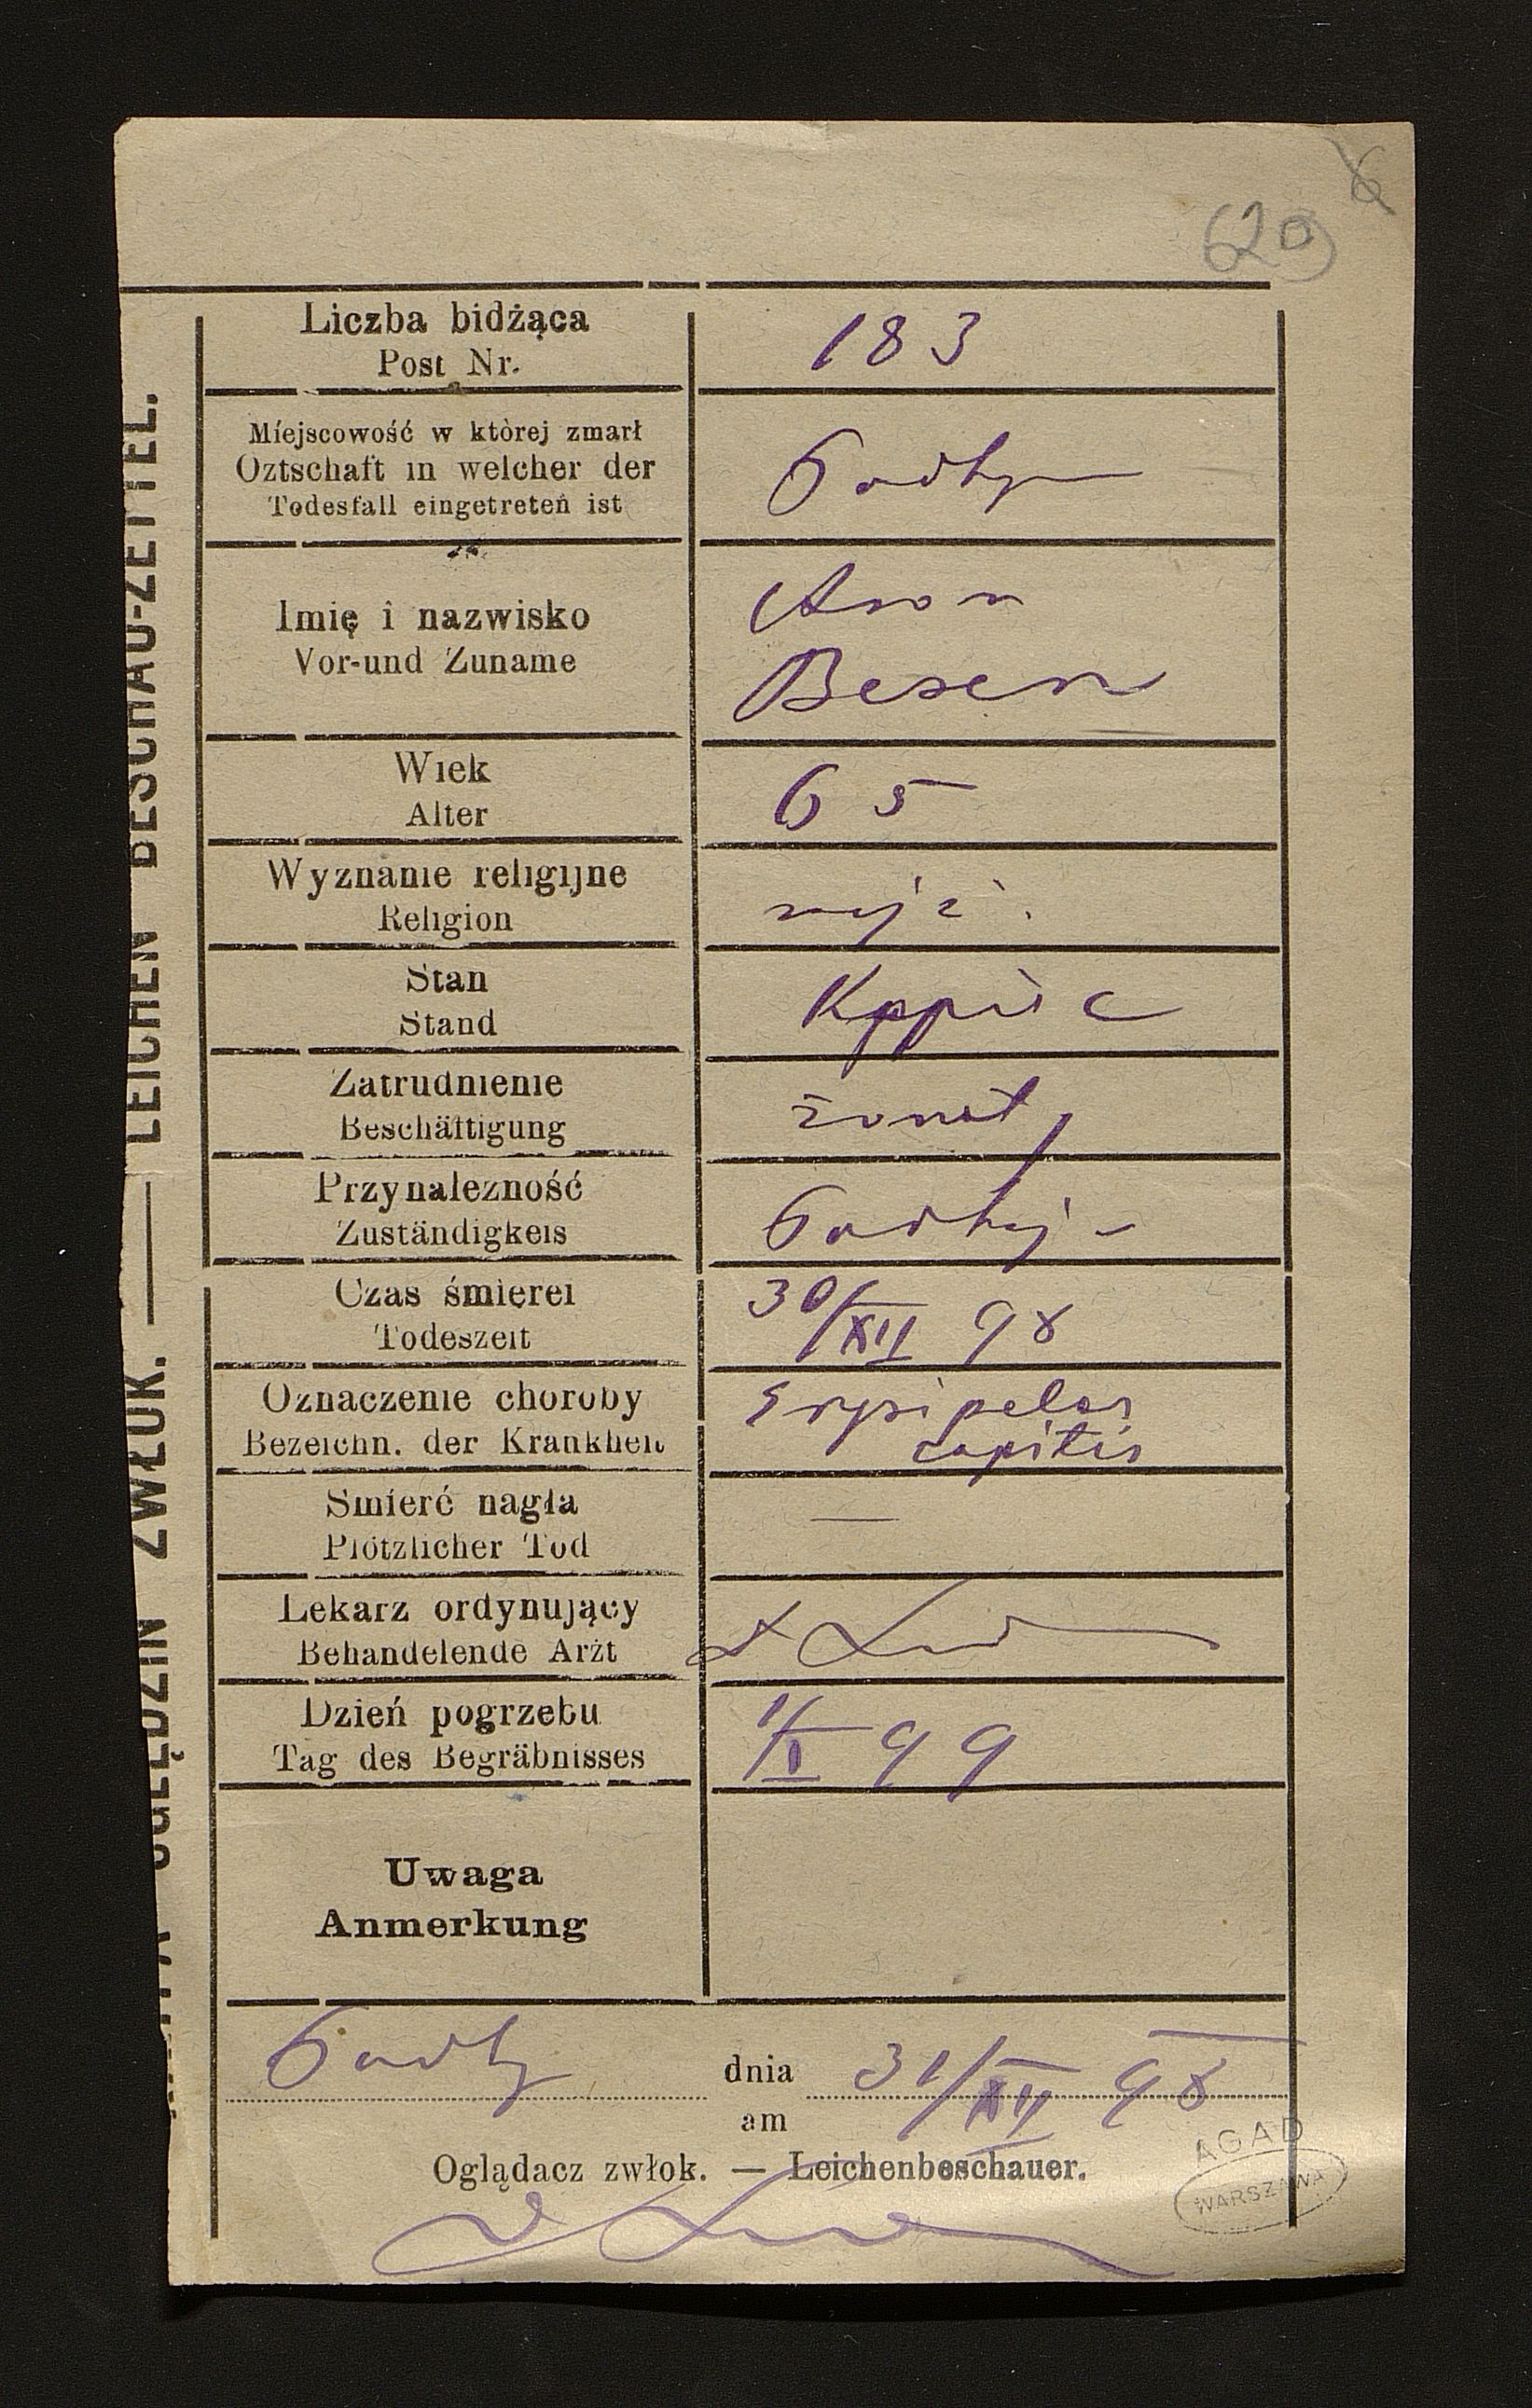 6
629
Liczba bidżąca
Post Nr.
183
Miejscowość w której zmarł
Oztschaft in welcher der
Todesfall eingetreten ist
Imię i nazwisko
Vor-und Zuname
Aron
Besen
Wiek
Alter
65
Wyznanie religijne
Religion
mojż.
Stan
Stand
Kupiec
Zatrudnienie
Beschäftigung
żonaty
Przynalezność
Zuständigkeis
Czas śmierei
Todeszeit
30/XII 98
Oznaczenie choroby
Bezeichn. der Krankheit
Erysipelas
capitis
Smierć nagła
Plötzlicher Tod
—
Lekarz ordynujący
Behandelende Arzt
Dzień pogrzebu
Tag des Begräbnisses
1/I 99
Uwaga
Anmerkung
dnia 31/XII 98
am
Oglądacz zwłok. — Leichenbeschauer.
AGAD
WARSZAWA
OGLĘDZIN ZWŁOK. — LEICHEN BESCHAU-ZETTEL.